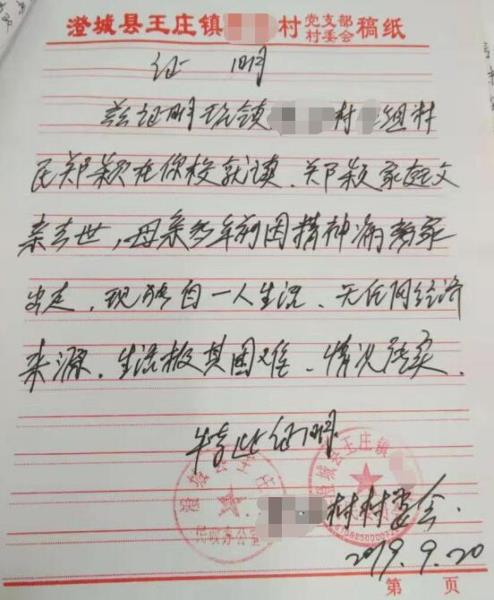 澄城县王庄镇 村 党支部 村委会 稿纸
证 明
兹证明我镇 村 组村
民郑颖在你校就读、郑颖家庭父
亲去世，母亲多年前因精神病离家
出走、现独自一人生活、无任何经济
来源、生活极其困难、情况属实.
特此证明
澄城县王庄
民政办公室
澄城县王庄镇
村村委会.
2019.9.20
第 页